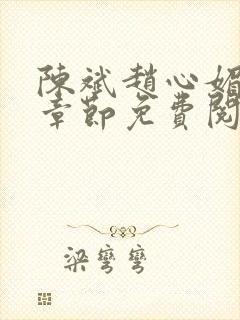 陳斌趙心媚
章節免費閱
梁彎彎